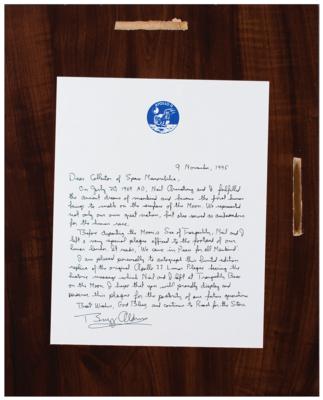 APOLLO
9 November, 1995
Dear Collector of Space Memorabilia,
On July 20 1969 AD, Neil Armstrong and I fulfilled
the ancient dream of mankind and became the first human
beings to walk on the surface of the Moon. We represented
not only our own great nation, but also served as ambassadors
for the human race.
Before departing the Moon's Sea of Tranquility, Neil and I
left a very special plaque affixed to the footpad of our
lunar lander. It reads, We came in Peace for all Mankind!
I am pleased personally to autograph this limited edition
replica of the original Apollo 11 Lunar Plaque bearing the
historic message which Neil and I left at Tranquility Base
on the Moon. I hope that you will proudly display and
preserve this plaque for the posterity of our future generations
Best Wishes, God Bless, and continue to Reach for the Stars
Buzz Aldrin